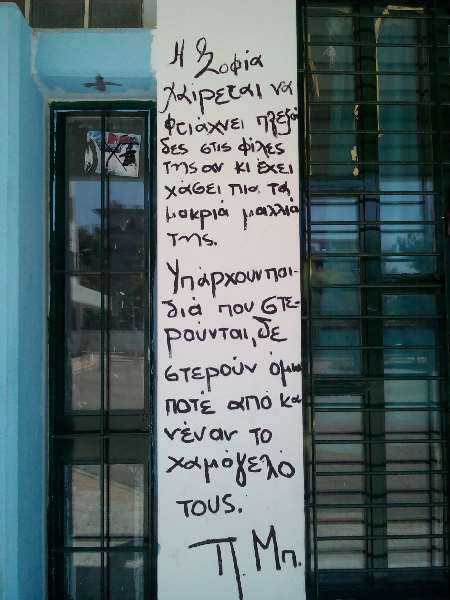 Η Σοφία
χαίρεται να
φτιάχνει πλεξού
δες στις φίλες
της αν κι έχει
χάσει πια τα
μακριά μαλλιά
της.
Υπάρχουν παι-
διά που στε-
ρούνται, δε
στερούν όμως
ποτέ από κα
νέναν το
χαμόγελό
τους.
Π. Μπ.